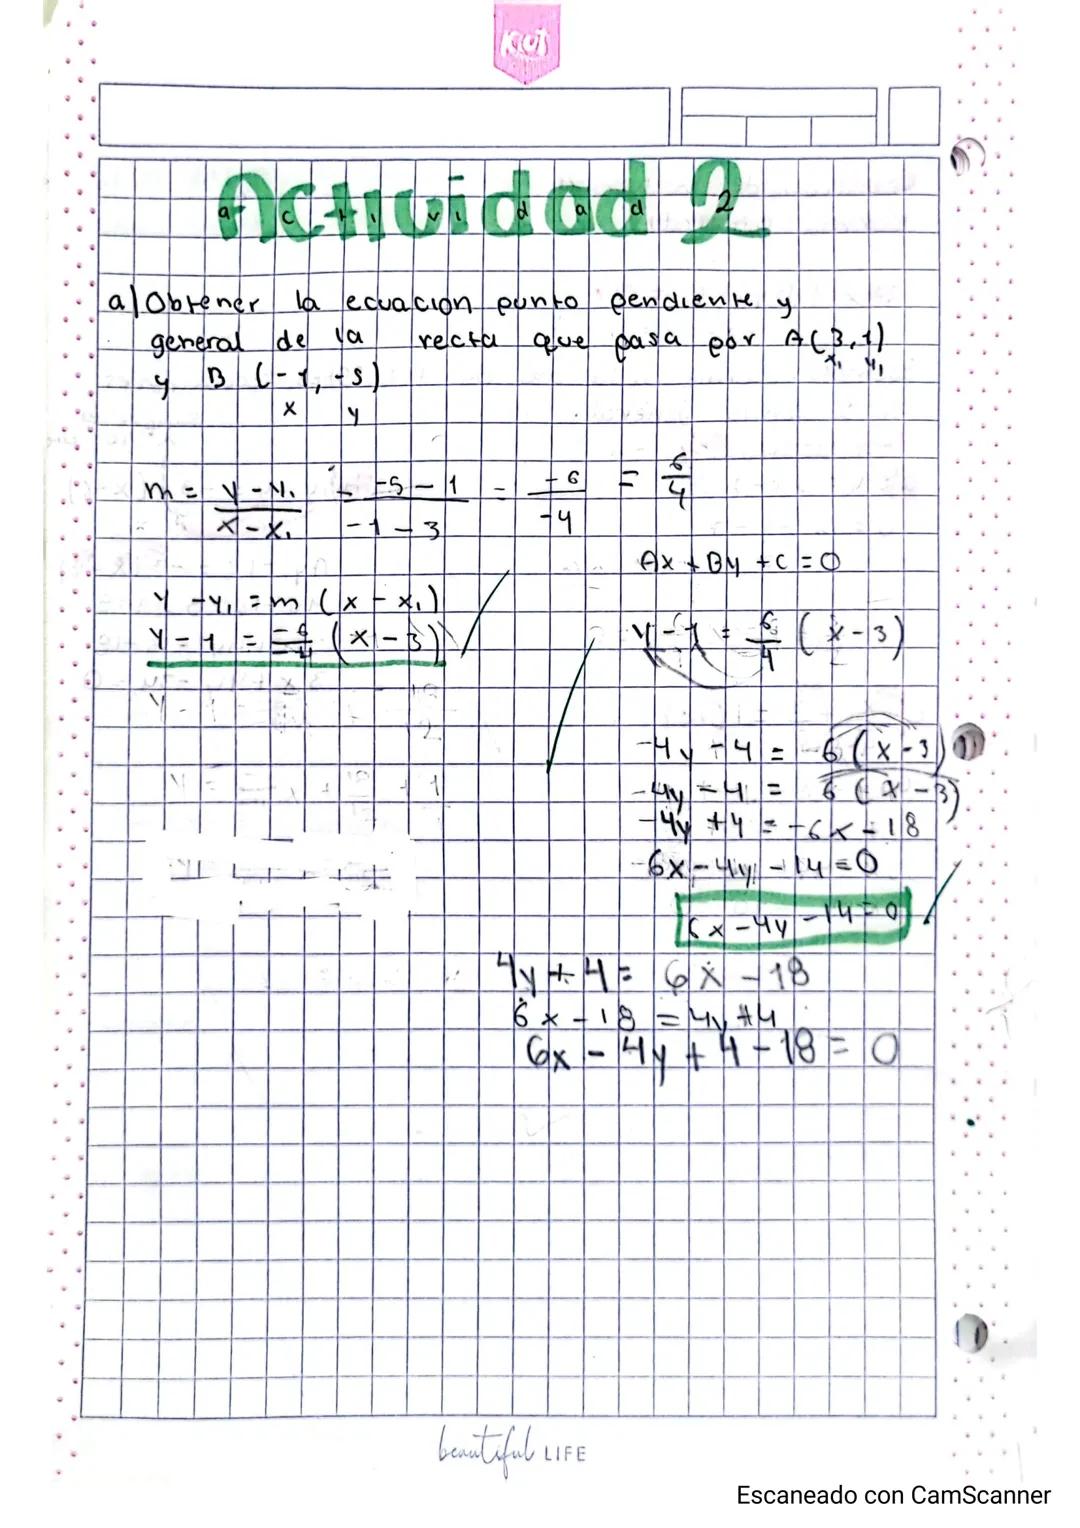 KUT
Actividad 2
a) Obtener la ecuación punto pendiente y
general de la recta que pasa por A(3,1)
x₁ y₁
y B (-1,-5)
x y
m = y - y₁ / x - x₁ = -5 - 1 / -1 - 3 = -6 / -4 = 6/4
Ax + By + C = 0
y - y₁ = m (x - x₁)
y - 1 = -6/-4 (x - 3)
y - 1 = 6/4 (x - 3)
-4y - 4 = -6(x-3)
-4y - 4 = 6 (x - 3)
-4y + 4 = -6x - 18
6x - 4y - 14 = 0
6x - 4y - 14 = 0
4y + 4 = 6x - 18
6x - 18 = 4y + 4
6x - 4y + 4 - 18 = 0
beautiful LIFE
Escaneado con CamScanner